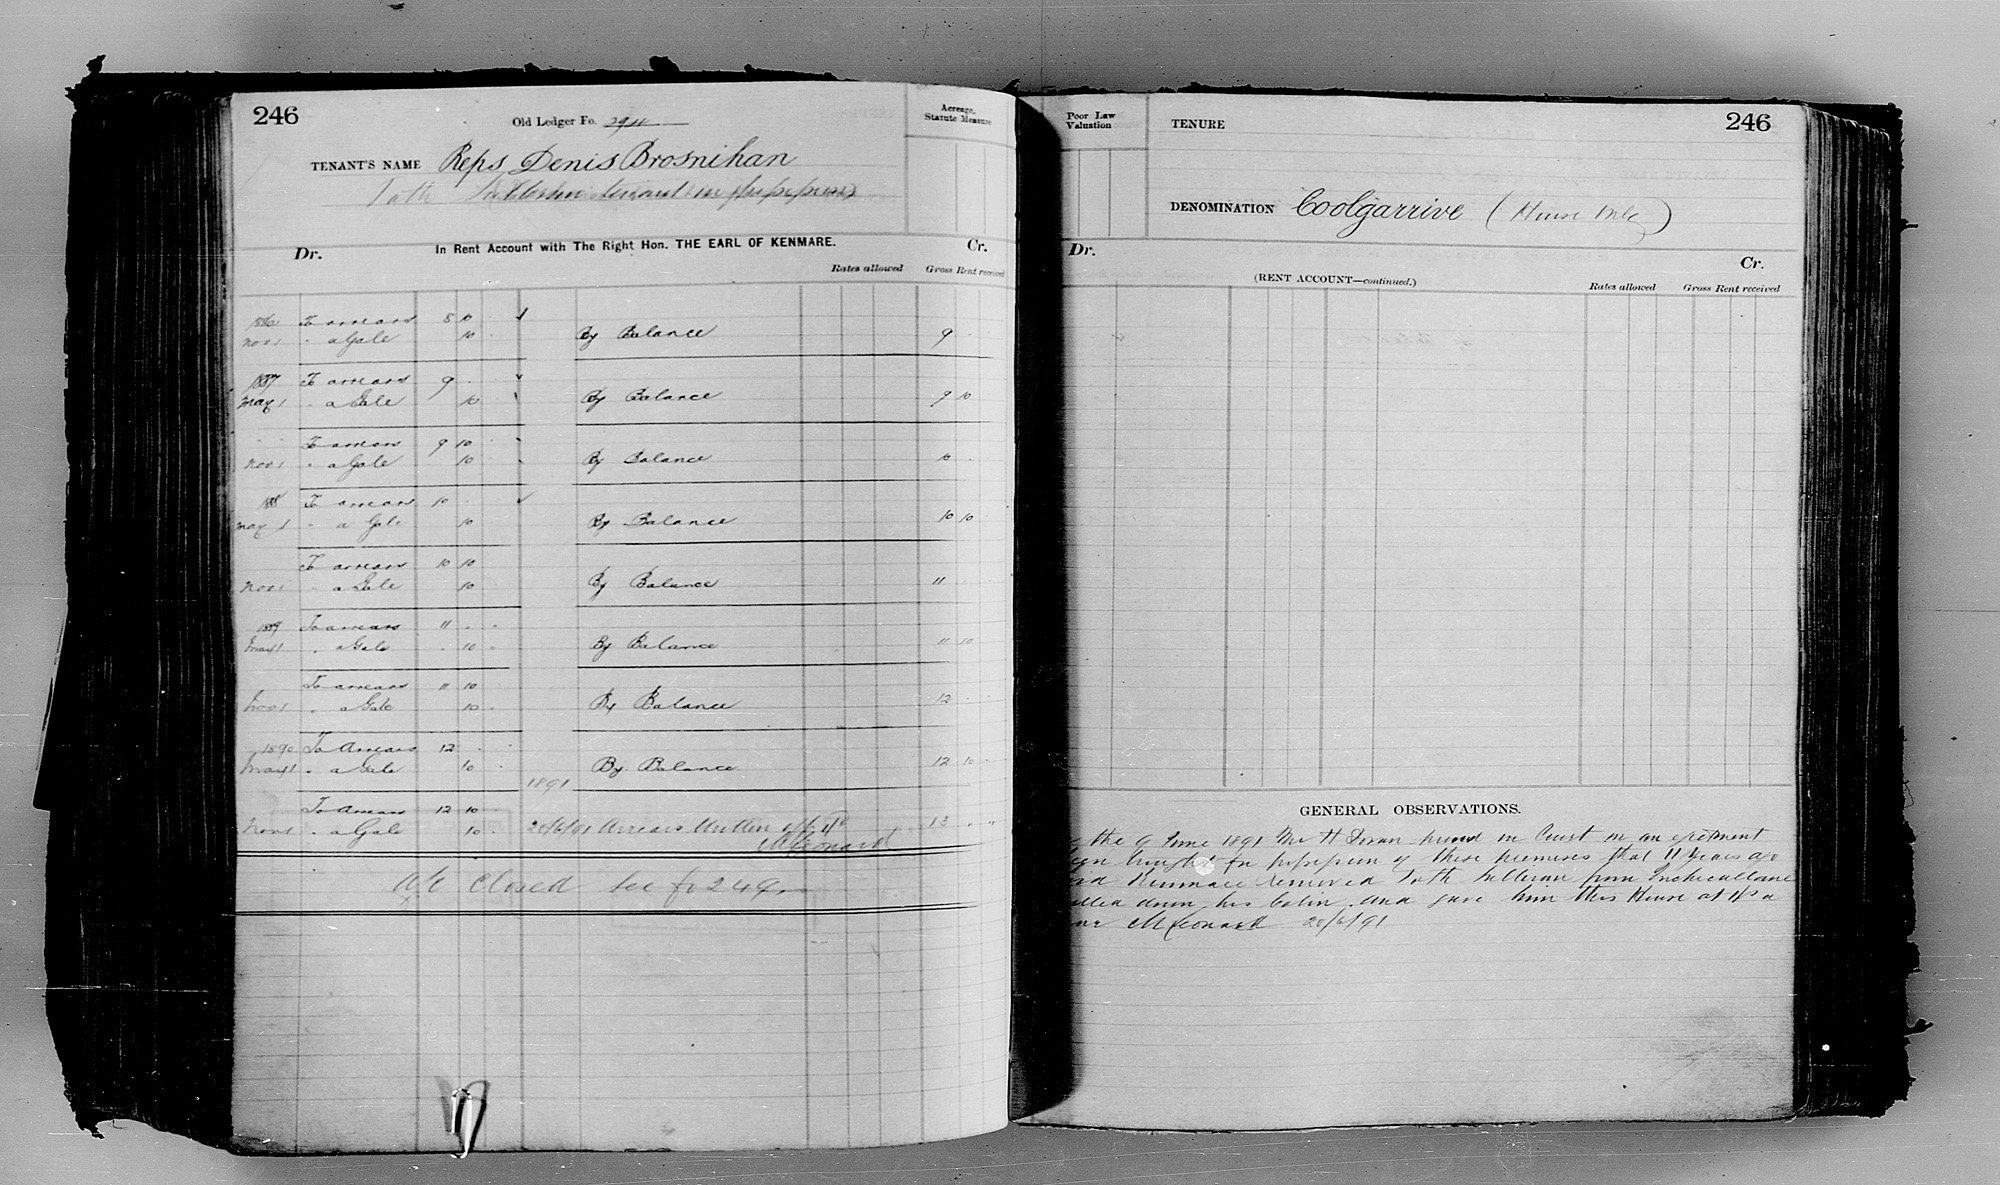 246
Old Ledger Fo.
Acreage, Statute Measure
TENANT'S NAME Reps Denis Brosnihan
Path Sullivan tenant in possession
Dr. In Rent Account with The Right Hon. THE EARL OF KENMARE. Cr.
Rates allowed Gross Rent received
1886 To arrears 8 10
Nov 1 " a Gale 10 By Balance 9
1887 To arrears 9
May 1 " a Gale 10 By Balance 9 10
To arrears 9 10
Nov 1 " a Gale 10 By Balance 10
1888 To arrears 10
May 1 " a Gale 10 By Balance 10 10
To arrears 10 10
Nov 1 " a Gale 10 By Balance 11
1889 To arrears 11
May 1 " a Gale 10 By Balance 11 10
To arrears 11 10
Nov 1 " a Gale 10 By Balance 12
1890 To Arrears 12
May 1 " a Gale 10 By Balance 12 10
1891
To Arrears 12 10
Nov 1 " a Gale 10 20/6/91 Arrears Written off 13
MLeonard
A/c Closed See fo 249
Poor Law Valuation
TENURE
246
DENOMINATION Coolgarrive (House &c)
Dr. Cr.
(RENT ACCOUNT—continued.)
Rates allowed Gross Rent received
GENERAL OBSERVATIONS.
the 9 June 1891 Mr H in Court in an ejectment
brought for possession of these premises that 11 Years ago
Kenmare removed Path Sullivan from
down his Cabin and gave him this House at a
MLeonard 20/6/91